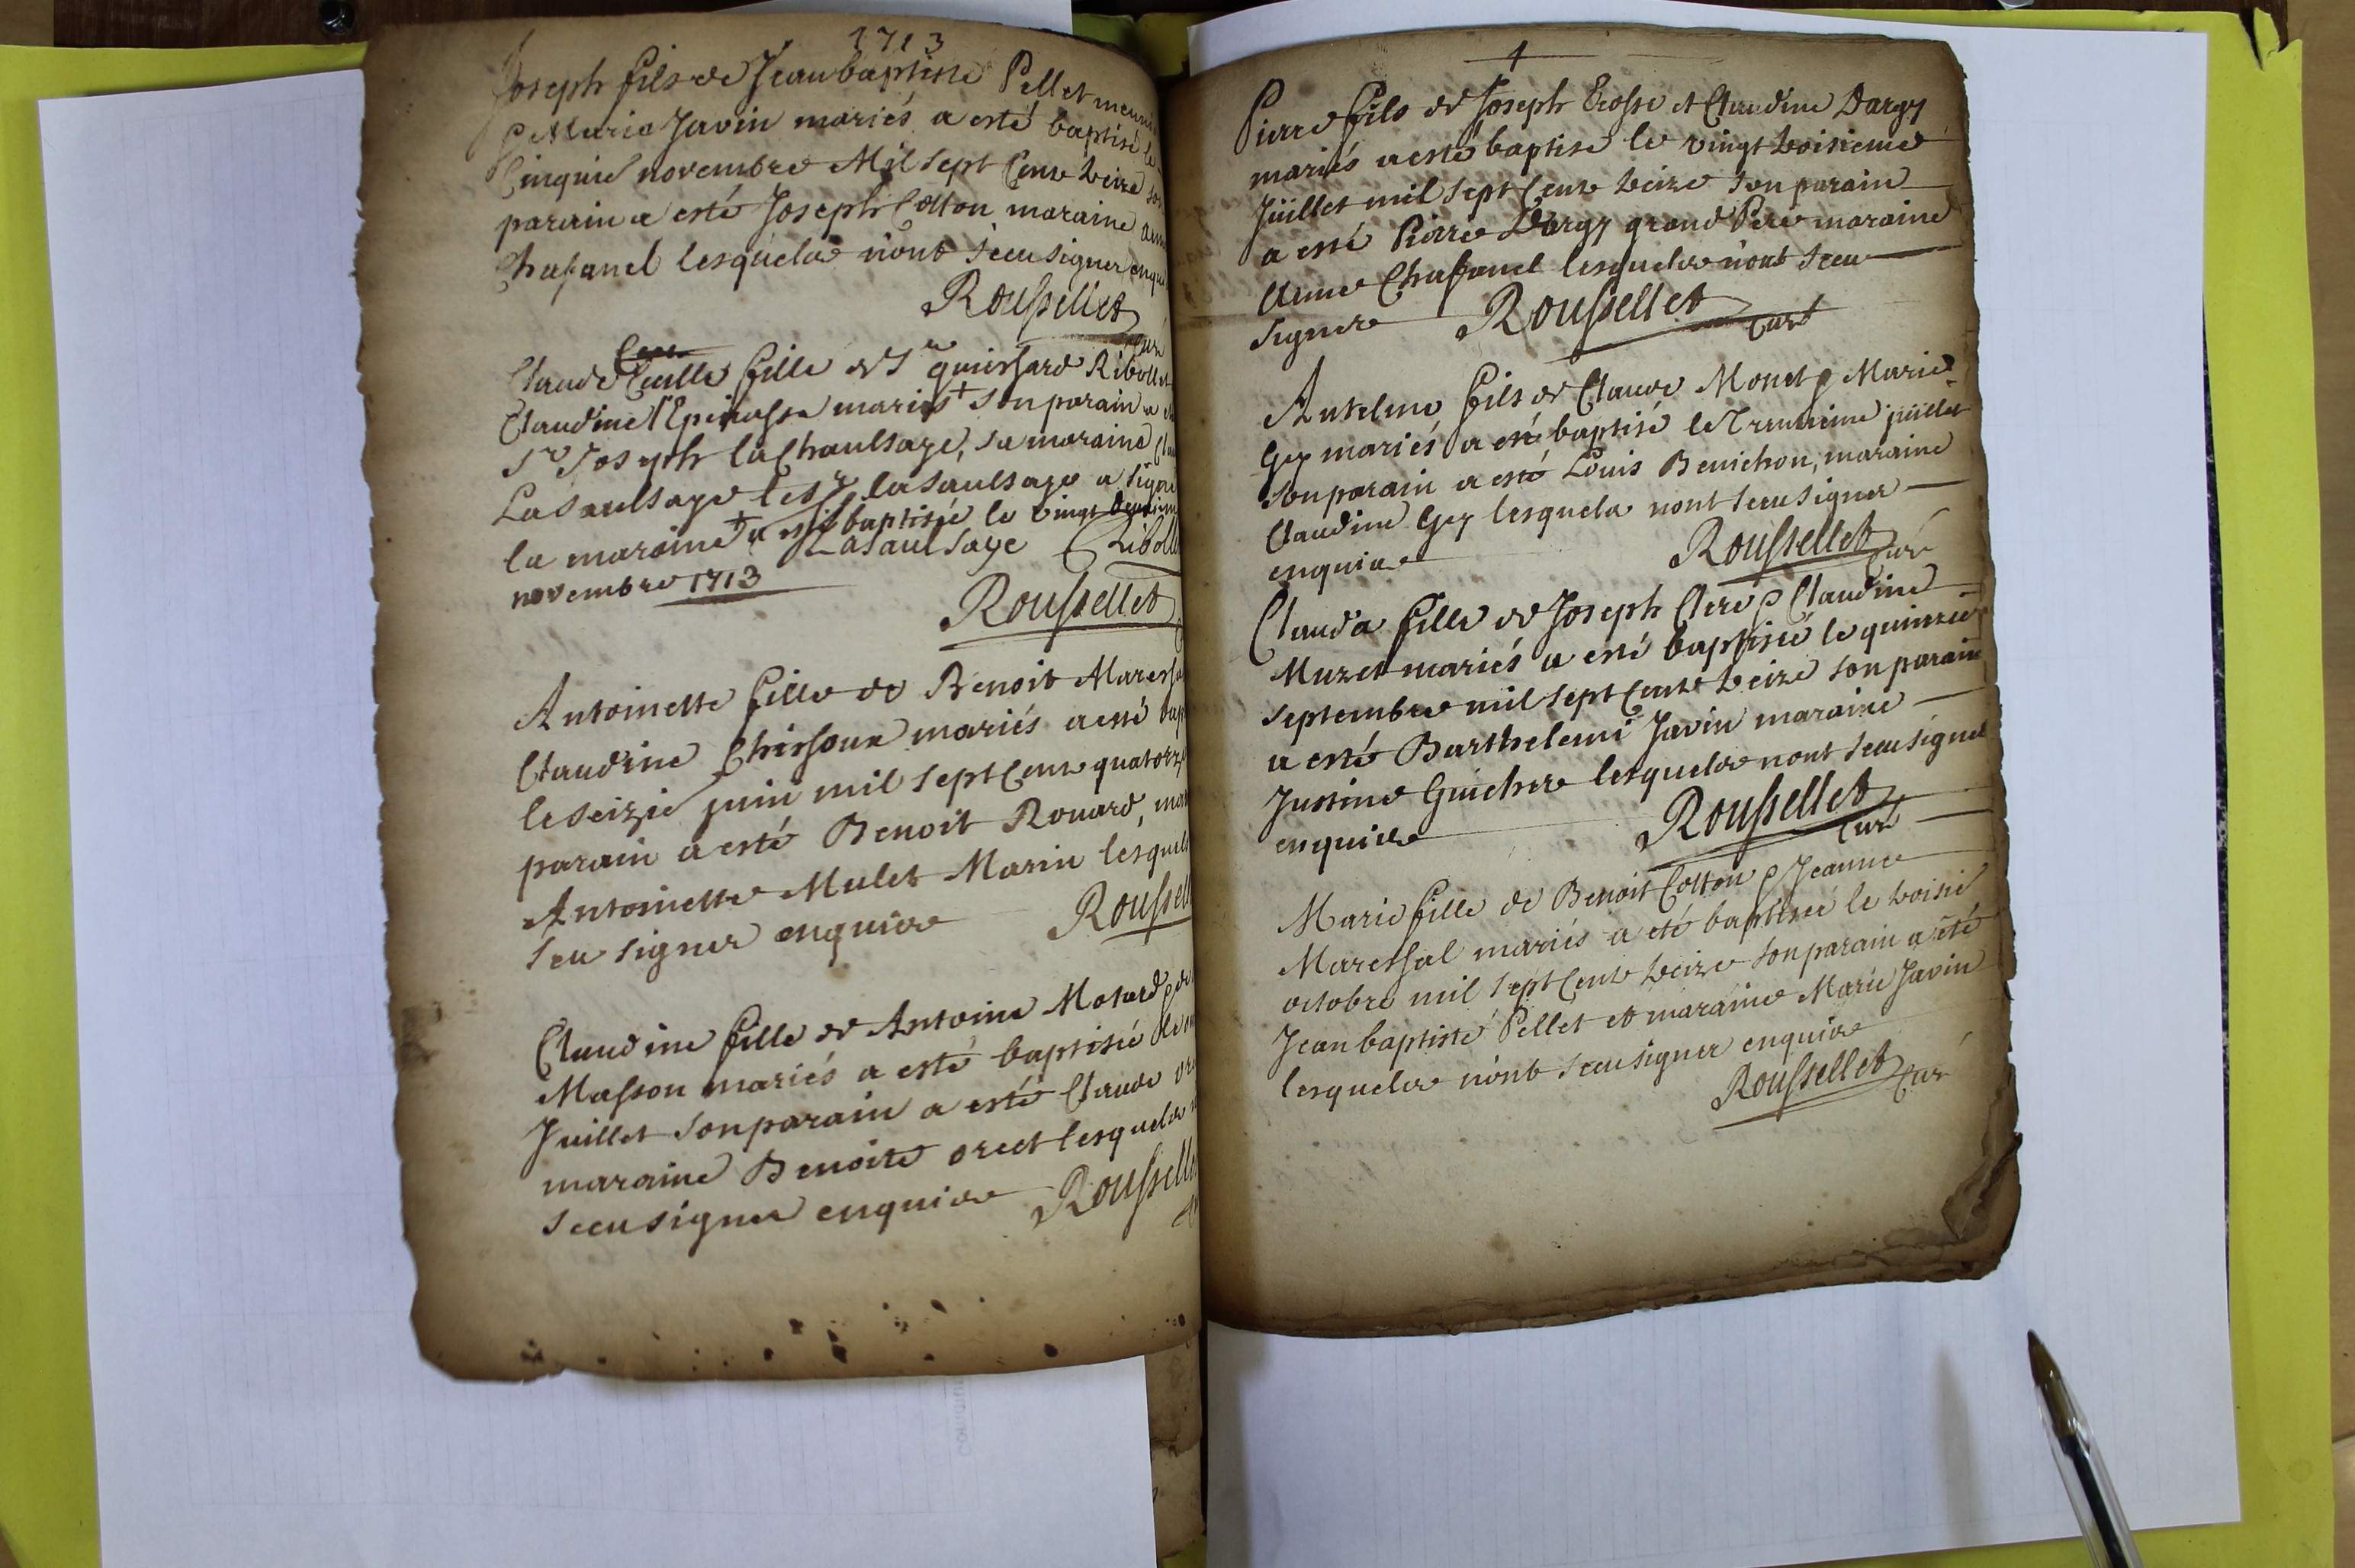 1713
Joseph fils de Jean baptiste Pellet
& Marie Javin mariés a esté baptisé le
Cinquie novembre Mil sept Cent treize son
parain a esté Joseph Cotton maraine
Chafanel lesquels n'ont sceu signer
Roussellet
Curé
Claude fille de Sr Ribollet
Claudine l'Epinasse mariés + son parain a
Sr Joseph la Chaulsaye, sa maraine
Lasaulsaye le sr lasaulsaye a signé
la maraine + a esté baptisée le vingt
Lasaulsaye Riboll
novembre 1713
Roussellet
Antoinette fille de Benoit Maressal
Claudine Chissoux mariés a esté bap
le seizie juin mil sept Cent quatorze
parain a esté Benoit Rouard, mar
Antoinette Mulet Marin lesquels
sceu signer enquis
Roussell
Claudine fille de Antoine Motard & de
Masson mariés a esté baptisée le
Juillet son parain a esté Claude
maraine Benoite oret lesquels
sceu signer enquis
Roussellet
4
Pierre fils de Joseph Brosse et Claudine Dargy
mariés a esté baptisé le vingt troisieme
Juillet mil sept Cent treize son parain
a esté Pierre Dargy grand Pere maraine
Anne Chafanel lesquels n'ont sceu
signer Roussellet Curé
Antelme fils de Claude Monet & Marie
Gey mariés a esté baptisé le Trentieme juillet
son parain a esté Louis Benichon, maraine
Claudine Gey lesquels n'ont sceu signer
enquis Roussellet Curé
Clauda fille de Joseph Clere & Claudine
Muzet mariés a esté baptisée le quinzie
septembre mil sept Cent treize son parain
a esté Barthelemi Javin maraine
Justine Guichere lesquels n'ont sceu signer
enquis Roussellet
Curé
Marie fille de Benoit Cotton & Jeanne
Maressal mariés a été baptisée le troisie
octobre mil sept Cent treize son parain a été
Jean baptiste Pellet et maraine Marie Javin
lesquels n'ont sceu signer enquis
Roussellet Curé